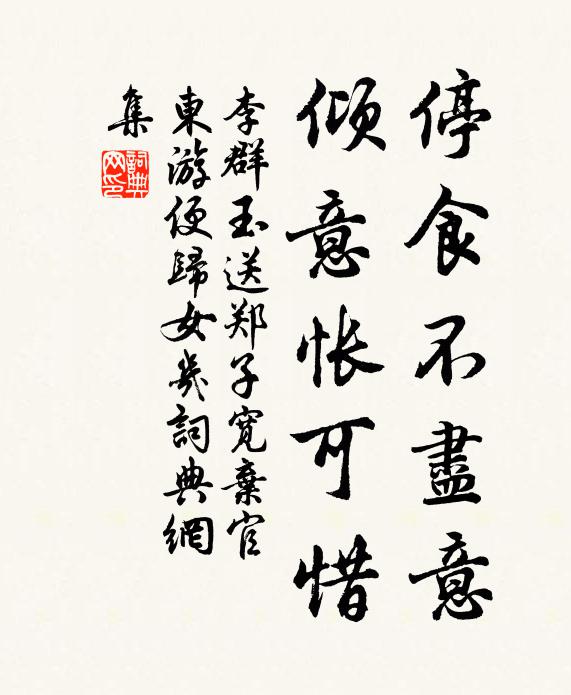 停食不盡意
傾意悵可惜
李群玉送郑子寛棄官
東游便歸女幾詞典網
集
詞典
网印